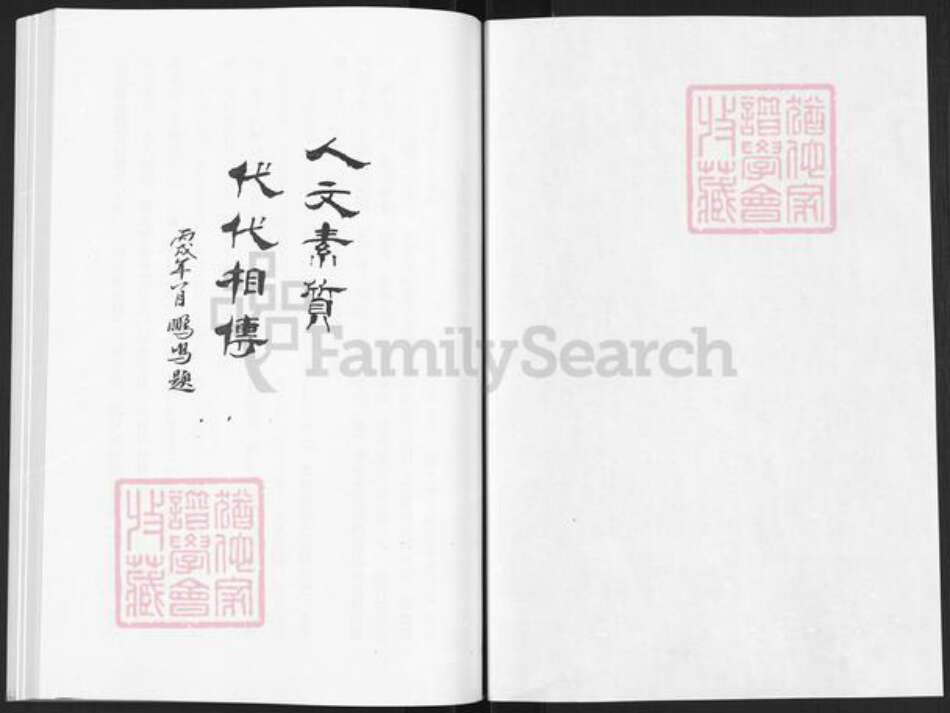 人文素質
代代相傳
丙戌年八月 鵬鳴題
猶他家
譜學會
收藏
猶他家
譜學會
收藏
FamilySearch